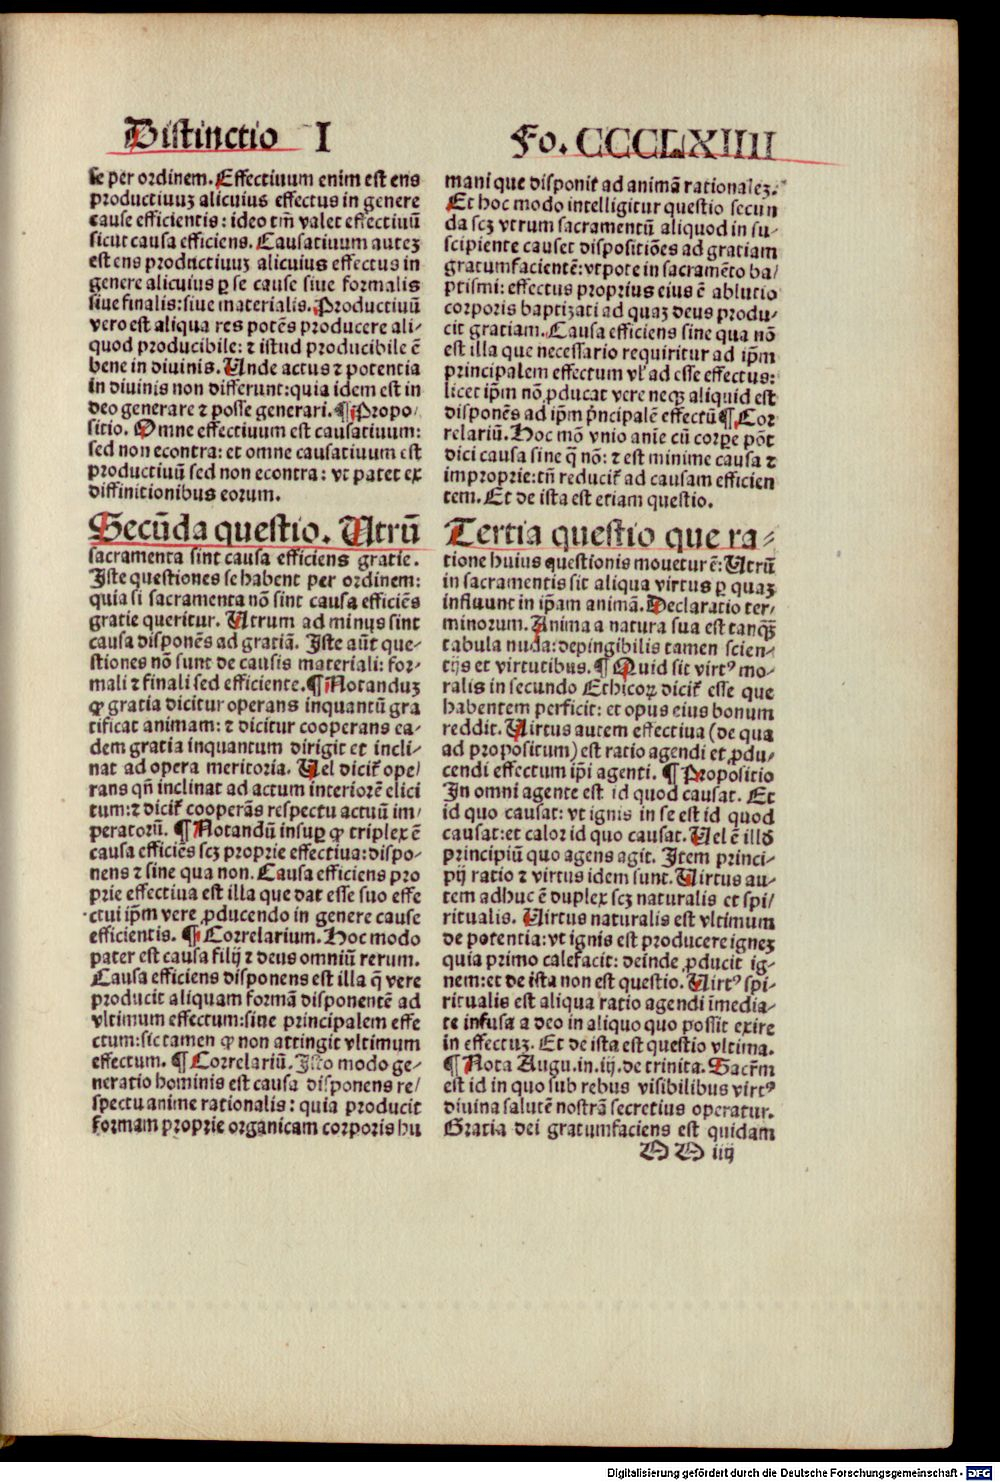 Distinctio I
Fo. CCCCLXIIII
se per ordinem. Effectiuum enim est ens
productiuuʒ alicuius effectus in genere
cause efficientis: ideo tm̄ valet effectiuū
sicut causa efficiens. Causatiuum auteʒ
est ens productiuuʒ alicuius effectus in
genere alicuius ꝑ se cause siue formalis
siue finalis: siue materialis. Productiuū
vero est aliqua res potēs producere ali⸗
quod producibile: ⁊ istud producibile ē
bene in diuinis. Unde actus ⁊ potentia
in diuinis non differunt: quia idem est in
deo generare ⁊ posse generari. ¶ Propo⸗
sitio. Omne effectiuum est causatiuum:
sed non econtra: et omne causatiuum est
productiuū sed non econtra: vt patet ex
diffinitionibus eorum.
Secūda questio. Utrū
sacramenta sint causa efficiens gratie.
Iste questiones se habent per ordinem:
quia si sacramenta nō sint causa efficiēs
gratie queritur. Utrum ad minus sint
causa disponēs ad gratiā. Iste aūt que⸗
stiones nō sunt de causis materiali: for⸗
mali ⁊ finali sed efficiente. ¶ Notanduʒ
ꝙ gratia dicitur operans inquantū gra
tificat animam: ⁊ dicitur cooperans ea⸗
dem gratia inquantum dirigit et incli⸗
nat ad opera meritoria. Uel dicit̄ ope⸗
rans qn̄ inclinat ad actum interiorē elici
tum: ⁊ dicit̄ cooperās respectu actuū im⸗
peratorū. ¶ Notandū insuꝑ ꝙ triplex ē
causa efficiēs scʒ proprie effectiua: dispo⸗
nens ⁊ sine qua non. Causa efficiens pro
prie effectiua est illa que dat esse suo effe
ctui ip̄m vere ꝓducendo in genere cause
efficientis. ¶ Correlarium. Hoc modo
pater est causa filij ⁊ deus omniū rerum.
Causa efficiens disponens est illa q̄ vere
producit aliquam formā disponentē ad
vltimum effectum: siue principalem effe
ctum: sic tamen ꝙ non attingit vltimum
effectum. ¶ Correlariū. Isto modo ge⸗
neratio hominis est causa disponens re⸗
spectu anime rationalis: quia producit
formam proprie organicam corporis hu
mani que disponit̄ ad animā rationaleʒ.
Et hoc modo intelligitur questio secun
da scʒ vtrum sacramentū aliquod in su⸗
scipiente causet dispositiōes ad gratiam
gratumfacientē: vtpote in sacramēto ba⸗
ptismi: effectus proprius eius ē ablutio
corporis baptizati ad quaʒ deus produ⸗
cit gratiam. Causa efficiens sine qua nō
est illa que necessario requiritur ad ip̄m
principalem effectum vl̓ ad esse effectus:
licet ip̄m nō ꝓducat vere neqꝫ aliquid est
disponēs ad ip̄m pn̄cipalē effectū ¶ Cor
relariū. Hoc mō vnio anīe cū corꝑe pōt
dici causa sine q̄ nō: ⁊ est minime causa ⁊
improprie: tn̄ reducit̄ ad causam efficien
tem. Et de ista est etiam questio.
Tertia questio que ra⸗
tione huius questionis mouetur ē: Utrū
in sacramentis sit aliqua virtus ꝑ quaʒ
influunt in ip̄am animā. Declaratio ter⸗
minorum. Anima a natura sua est tanqꝫ̄
tabula nuda: depingibilis tamen scien⸗
tijs et virtutibus. ¶ Quid sit virtꝰ mo⸗
ralis in secundo Ethicoꝝ dicit̄ esse que
habentem perficit: et opus eius bonum
reddit. Uirtus autem effectiua (de qua
ad propositum) est ratio agendi et ꝓdu⸗
cendi effectum ip̄i agenti. ¶ Propositio
In omni agente est id quod causat. Et
id quo causat: vt ignis in se est id quod
causat: et calor id quo causat. Uel ē illđ
principiū quo agens agit. Item princi⸗
pij ratio ⁊ virtus idem sunt. Uirtus au⸗
tem adhuc ē duplex scʒ naturalis et spi⸗
ritualis. Uirtus naturalis est vltimum
de potentia: vt ignis est producere igneʒ
quia primo calefacit: deinde ꝓducit ig⸗
nem: et de ista non est questio. Uirtꝰ spi⸗
ritualis est aliqua ratio agendi īmedia⸗
te infusa a deo in aliquo quo possit exire
in effectuʒ. Et de ista est questio vltima.
¶ Nota Augu. in .iij. de trinita. Sacr̄m
est id in quo sub rebus visibilibus virtꝰ
diuina salutē nostrā secretius operatur.
Gratia dei gratumfaciens est quidam
O O iij
Digitalisierung gefördert durch die Deutsche Forschungsgemeinschaft - DFG